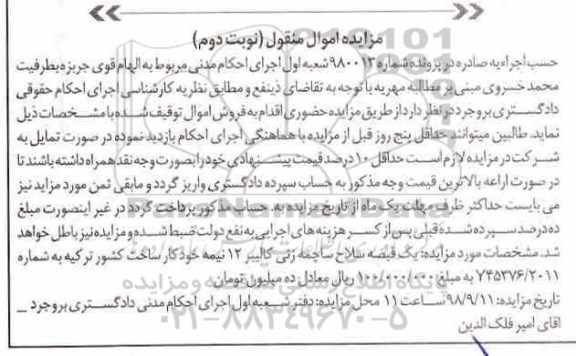 مزایده اموال منقول (نوبت دوم)
حسب اجراییه صادره در پرونده شماره ۹۸۰۰۱۳ شعبه اول اجرای احکام مدنی مربوط به الهام قوی جربزه بطرفیت
محمد خسروی مبنی بر مطالبه مهریه با توجه به تقاضای ذینفع و مطابق نظریه کارشناسی اجرای احکام حقوقی
دادگستری بروجرد در نظر دارد از طریق مزایده حضوری اقدام به فروش اموال توقیف شده با مشخصات ذیل
نماید. طالبین میتوانند حداقل پنج روز قبل از مزایده با هماهنگی اجرای احکام بازدید نموده در صورت تمایل به
شرکت در مزایده لازم است حداقل ۱۰ درصد قیمت پیشنهادی خود را بصورت وجه نقد همراه داشته باشند تا
در صورت اراعه بالاترین قیمت وجه مذکور به حساب سپرده دادگستری واریز گردد و مابقی ثمن مورد مزاید نیز
می بایست حداکثر ظرف مهلت یک ماه از تاریخ مزایده به حساب مذکور پرداخت گردد در غیر اینصورت مبلغ
ده درصد سپرده شده قبلی پس از کسر هزینه های اجرایی به نفع دولت ضبط شده و مزایده نیز باطل خواهد
شد. مشخصات مورد مزایده: یک قبضه سلاح ساچمه زنی کالیبر ۱۲ نیمه خودکار ساخت کشور ترکیه به شماره
۷۴۵۳۷۶/۲۰۱۱ به مبلغ ۱۰۰/۰۰۰/۰۰۰ ریال معادل ده میلیون تومان
تاریخ مزایده: ۹۸/۹/۱۱ ساعت ۱۱ محل مزایده: دفتر شعبه اول اجرای احکام مدنی دادگستری بروجرد _
آقای امیر فلک الدین
۰۲۱-۸۸۳۴۹۶۷۰-۵